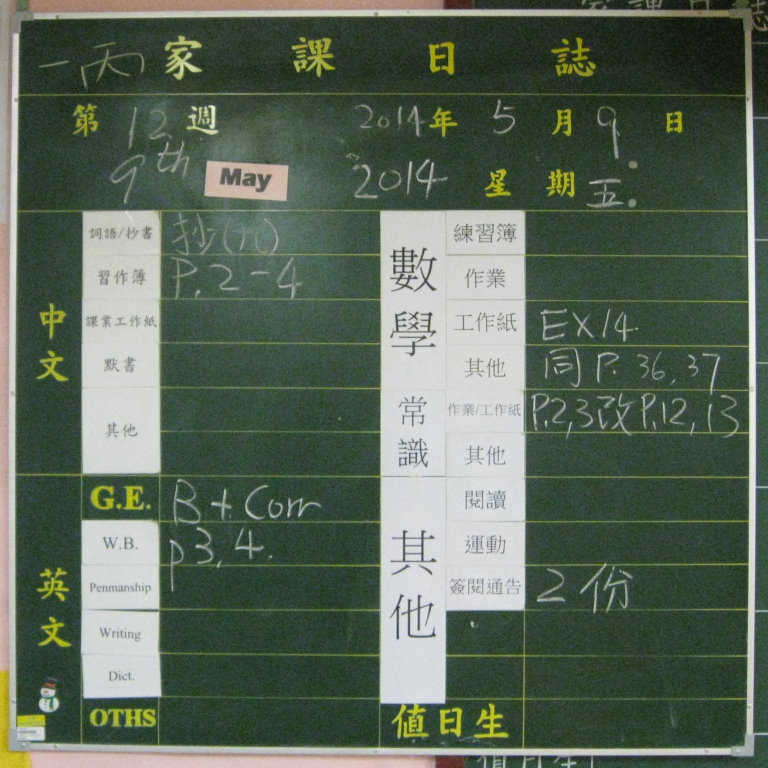 一丙 家課日誌
第 12 週 2014 年 5 月 9 日
9th May 2014 星期 五
中文
詞語/抄書 抄
習作簿 P.2-4
課業工作紙
默書
其他
英文
G.E. B + Corr
W.B. p3,4.
Penmanship
Writing
Dict.
OTHS
數學
練習簿
作業
工作紙 EX14
其他 同 P.36,37
常識
作業/工作紙 P.2,3改P.12,13
其他
其他
閱讀
運動
簽閱通告 2份
值日生